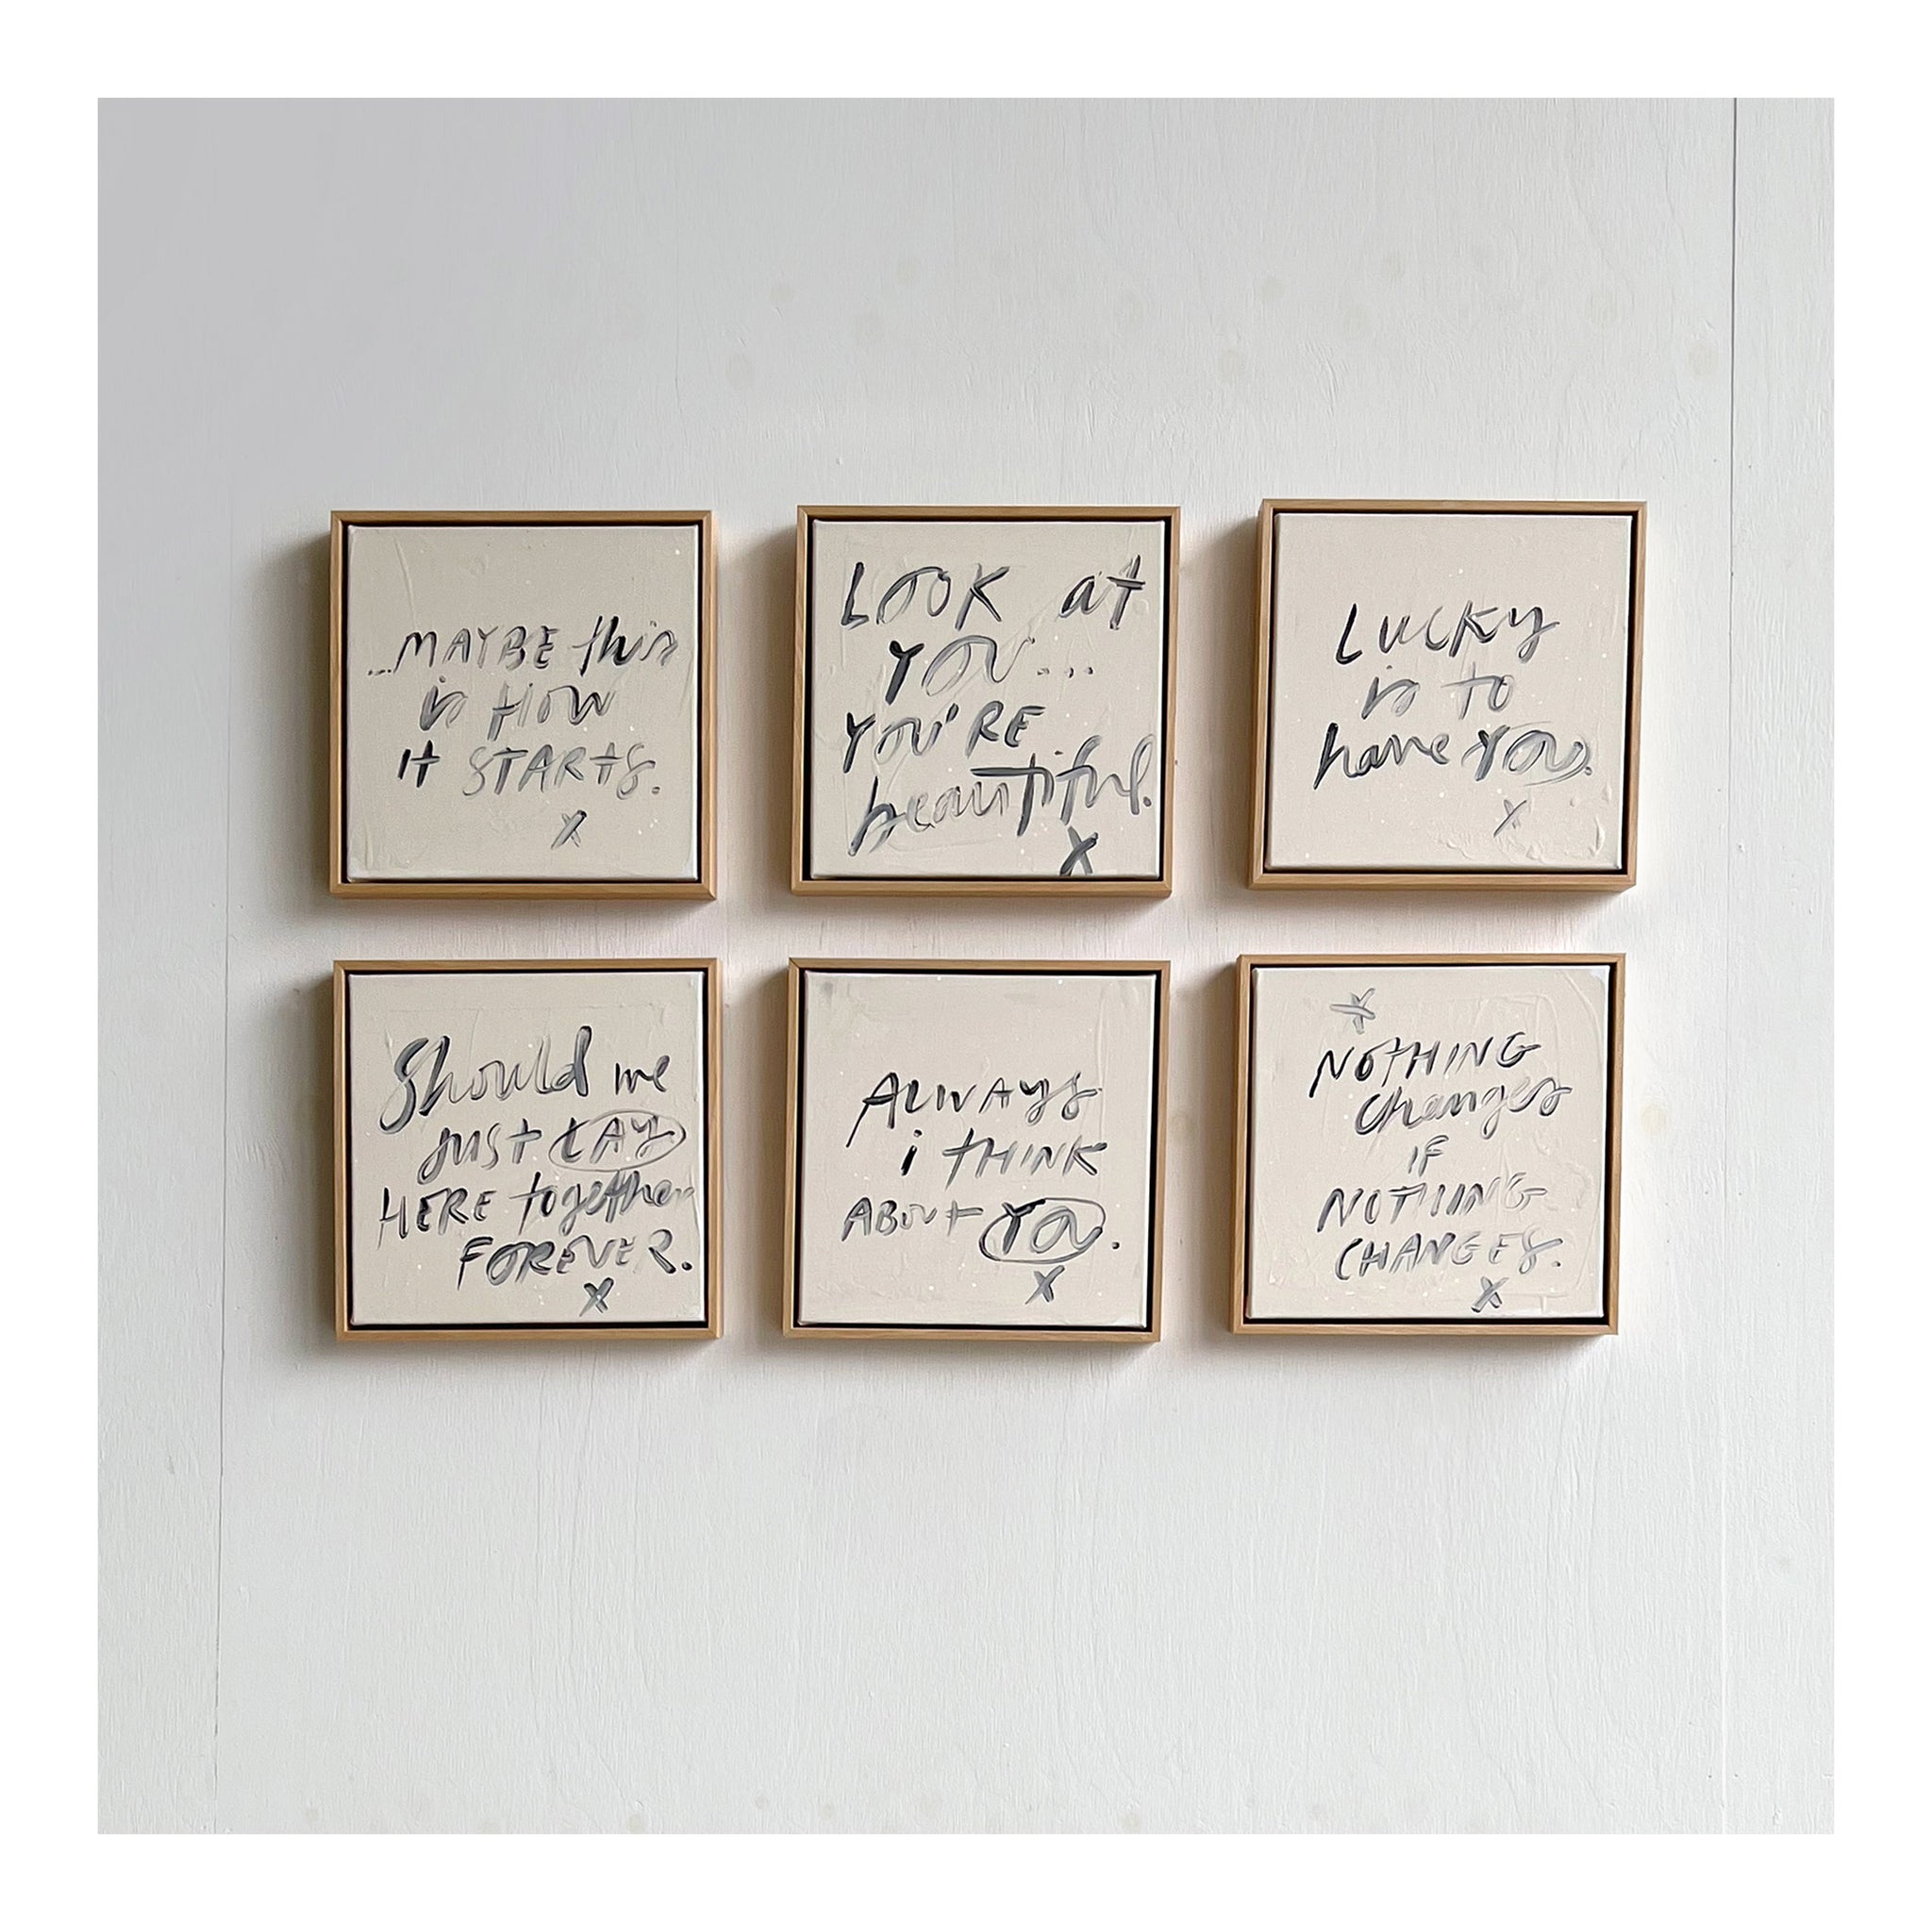 ...MAYBE this
is HOW
it STARTS.
x
LOOK at
YOU...
YOU'RE
beautiful.
x
LUCKY
is to
have YOU.
x
Should we
JUST LAY
HERE together
FOREVER.
x
ALWAYS
i THINK
ABOUT YOU.
x
x
NOTHING
changes
IF
NOTHING
CHANGES.
x